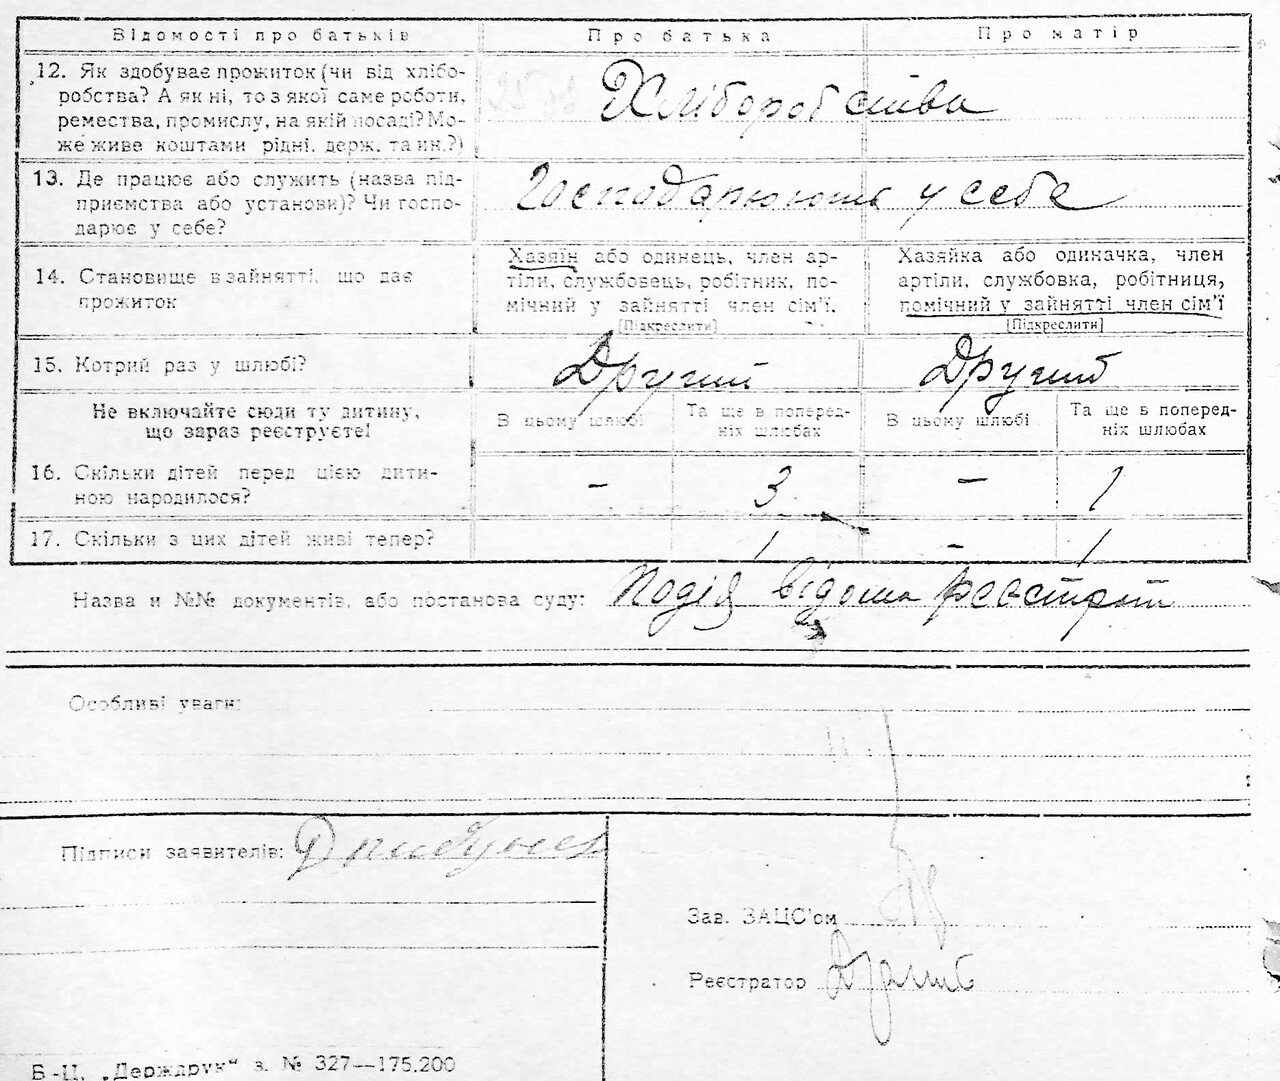 Відомості про батьків Про батька Про матір
12. Як здобуває прожиток (чи від хлібо-
робства? А як ні, то з якої саме роботи,
ремества, промислу, на якій посаді? Мо-
же живе коштами рідні, держ. та ин.?)
Хліборобства
13. Де працює або служить (назва під-
приємства або установи)? Чи госпо-
дарює у себе?
Господарюють у себе
14. Становище в зайнятті, що дає
прожиток
Хазяїн або одинець, член ар-
тіли, службовець, робітник, по-
мічний у зайнятті член сім'ї.
[Підкреслити]
Хазяйка або одиначка, член
артіли, службовка, робітниця,
помічний у зайнятті член сім'ї
[Підкреслити]
15. Котрий раз у шлюбі? Другий Другий
Не включайте сюди ту дитину,
що зараз реєструєте!
В цьому шлюбі
Та ще в поперед-
ніх шлюбах
В цьому шлюбі
Та ще в поперед-
ніх шлюбах
16. Скільки дітей перед цією дити-
ною народилося?
– 3 – 1
17. Скільки з цих дітей живі тепер? 1 – 1
Назва й №№ документів, або постанова суду: Подія відома реєстрат
Особливі уваги:
Підписи заявителів:
Зав. ЗАЦС'ом
Реєстратор
Б-Ц. „Держдрук“ з. № 327—175.200